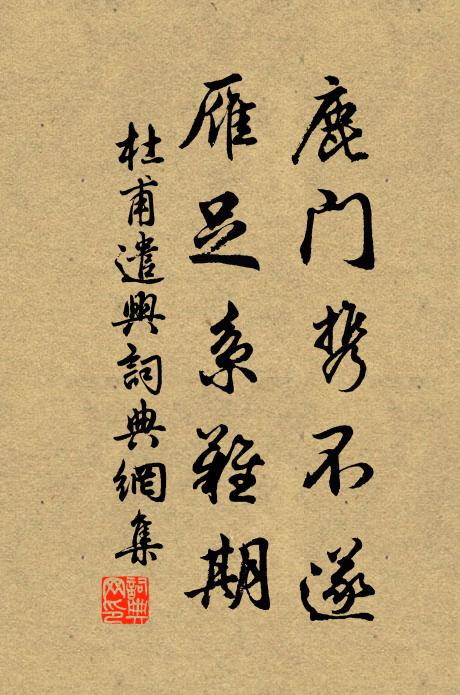 鹿门携不遂
雁足系難期
杜甫遣興詞典網集
詞典
网印